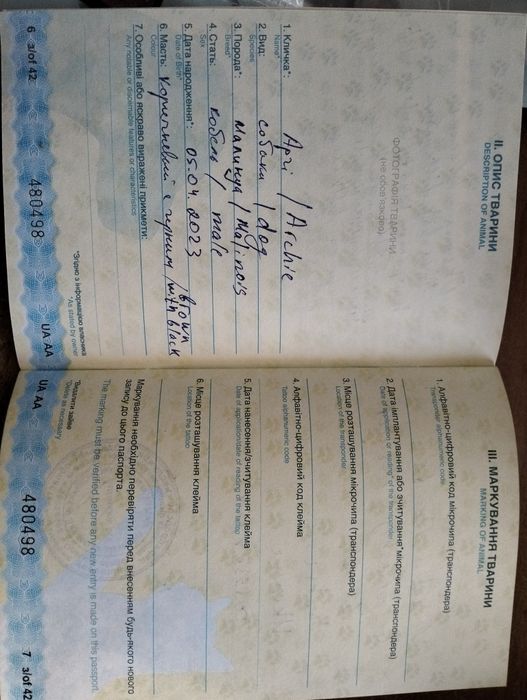 II. ОПИС ТВАРИНИ
DESCRIPTION OF ANIMAL
ФОТОГРАФІЯ ТВАРИНИ
(не обов'язково)
1. Кличка*: Арчі / Archie
Name*
2. Вид: собака / dog
Species
3. Порода*: малинуа / Malinois
Breed*
4. Стать: кобель / male
Sex
5. Дата народження*: 05.04.2023
Date of Birth*
6. Масть: коричневый с черным / brown with black
Colour
7. Особливі або яскраво виражені прикмети:
Any notable or discernable features or characteristics
*Згідно з інформацією власника
*As stated by owner
6 з/of 42
480498
UA AA
III. МАРКУВАННЯ ТВАРИНИ
MARKING OF ANIMAL
1. Алфавітно-цифровий код мікрочипа (транспондера)
Transponder alphanumeric code
2. Дата імплантування або зчитування* мікрочипа (транспондера)
Date of application or reading* of the transponder
3. Місце розташування мікрочипа (транспондера)
Location of the transponder
4. Алфавітно-цифровий код клейма
Tattoo alphanumeric code
5. Дата нанесення/зчитування клейма
Date of application/date of reading of the tattoo
6. Місце розташування клейма
Location of the tattoo
Маркування необхідно перевіряти перед внесенням будь-якого нового
запису до цього паспорта.
The marking must be verified before any new entry is made on this passport.
*Видалити зайве
*Delete as necessary
UA AA
480498
7 з/of 42